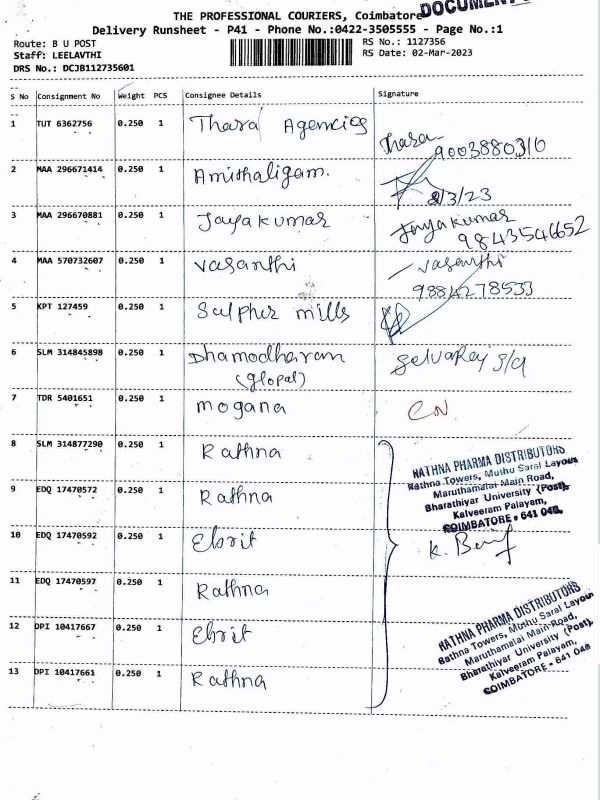 DOCUMEN
THE PROFESSIONAL COURIERS, Coimbatore
Delivery Runsheet - P41 - Phone No.:0422-3505555 - Page No.:1
Route: B U POST
RS No.: 1127356
Staff: LEELAVTHI
RS Date: 02-Mar-2023
DRS No.: DCJB112735601
S No Consignment No Weight PCS Consignee Details Signature
1 TUT 6362756 0.250 1 Thara Agencies Thara
9003880310
2 MAA 296671414 0.250 1 Amithaligam.
2/3/23
3 MAA 296670881 0.250 1 Jayakumar Jayakumar
9843546652
4 MAA 570732607 0.250 1 Vasanthi Vasanthi
9884278533
5 KPT 127459 0.250 1 Sulpher mills
6 SLM 314845898 0.250 1 Dhamodharam
(glopal)
7 TDR 5401651 0.250 1 mogana
8 SLM 314877290 0.250 1 Rathna
9 EDQ 17470572 0.250 1 Rathna
10 EDQ 17470592 0.250 1 Ebrit
11 EDQ 17470597 0.250 1 Rathna
12 DPI 10417667 0.250 1 Ebrit
13 DPI 10417661 0.250 1 Rathna
RATHNA PHARMA DISTRIBUTORS
Rathna Towers, Muthu Saral Layout
Maruthamalai Main Road,
Bharathiyar University (Post),
Kalveeram Palayam,
COIMBATORE - 641 046.
RATHNA PHARMA DISTRIBUTORS
Rathna Towers, Muthu Saral Layout
Maruthamalai Main Road,
Bharathiyar University (Post),
Kalveeram Palayam,
COIMBATORE - 641 046